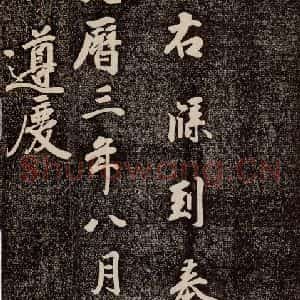 右牒到奉
曆三年八月
遵慶
Shufawang.CN